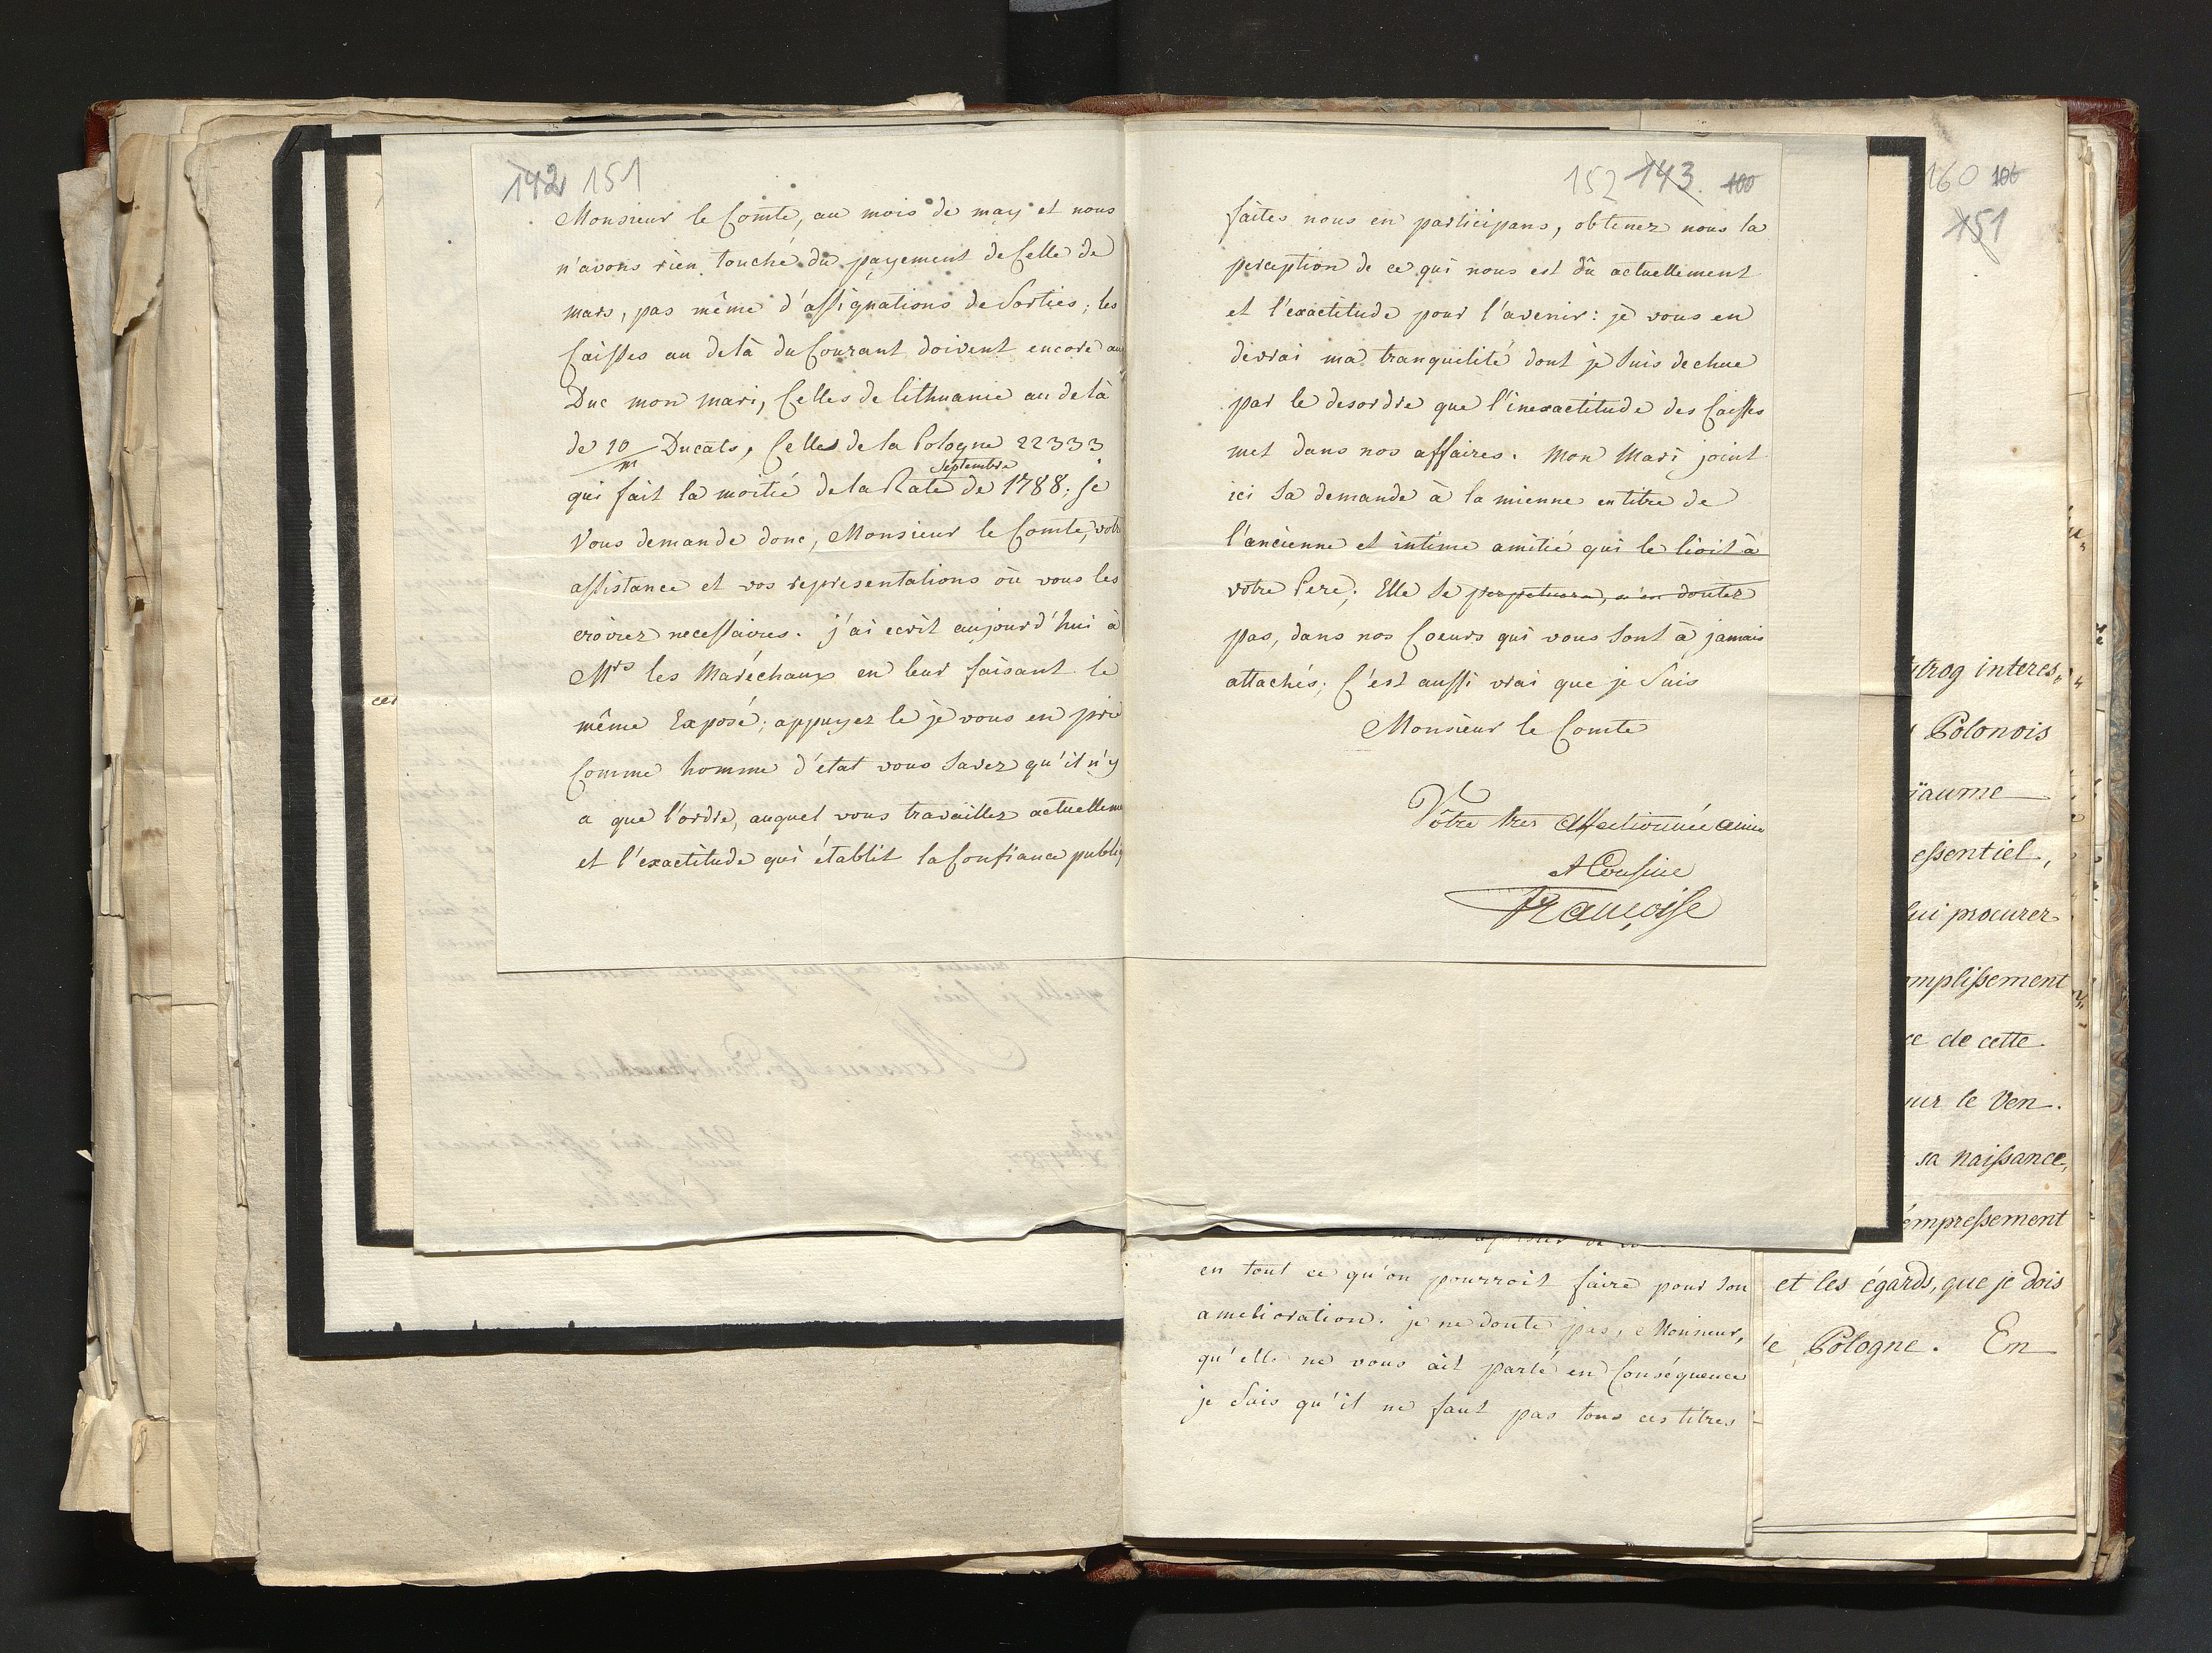 142 151
Monsieur le Comte, au mois de may et nous
n'avons rien touché du payement de Celle de
mars, pas même d'assignations de Sorties; les
Caisses au delà du Courant doivent encore au
Duc mon mari, Celles de lithuanie au delà
de 10/m Ducats, Celles de la Pologne 22333
septembre
qui fait la moitié de la Rate de 1788; Je
Vous demande donc, Monsieur le Comte, votre
assistance et vos representations où vous les
croirez necessaires. j'ai ecrit aujourd'hui à
Mrs les Maréchaux en leur faisant le
même Exposé; appuyez le je vous en prie
Comme homme d'état vous savez qu'il n'y
a que l'ordre, auquel vous travaillez actuelleme
et l'exactitude qui établit la Confiance publiq
152 143. 100
faites nous en participans, obtenez nous la
perception de ce qui nous est dû actuellement
et l'exactitude pour l'avenir: je vous en
devrai ma tranquilité dont je suis dechue
par le desordre que l'inexactitude des Caisses
met dans nos affaires. Mon Mari joint
ici sa demande à la mienne en titre de
l'ancienne et intime amitié qui le lioit à
votre Pere; Elle se perpetuera, n'en doutez
pas, dans nos Coeurs qui vous sont à jamais
attachés; C'est aussi vrai que je suis
Monsieur le Comte
Vôtre tres affectionnée amie
et Cousine
Françoise
en tout ce qu'on pourroit faire pour son
amelioration. je ne doute pas, Monsieur,
qu'elle ne vous ait parlé en Conséquence
je sais qu'il ne faut pas tous ces titres
160 106
151
trog interes„
Polonois
ïaume
essentiel,
lui procurer
mplissement
ce de cette
ur le Ven.
sa naissance,
empressement
et les égards, que je dois
le Pologne. En